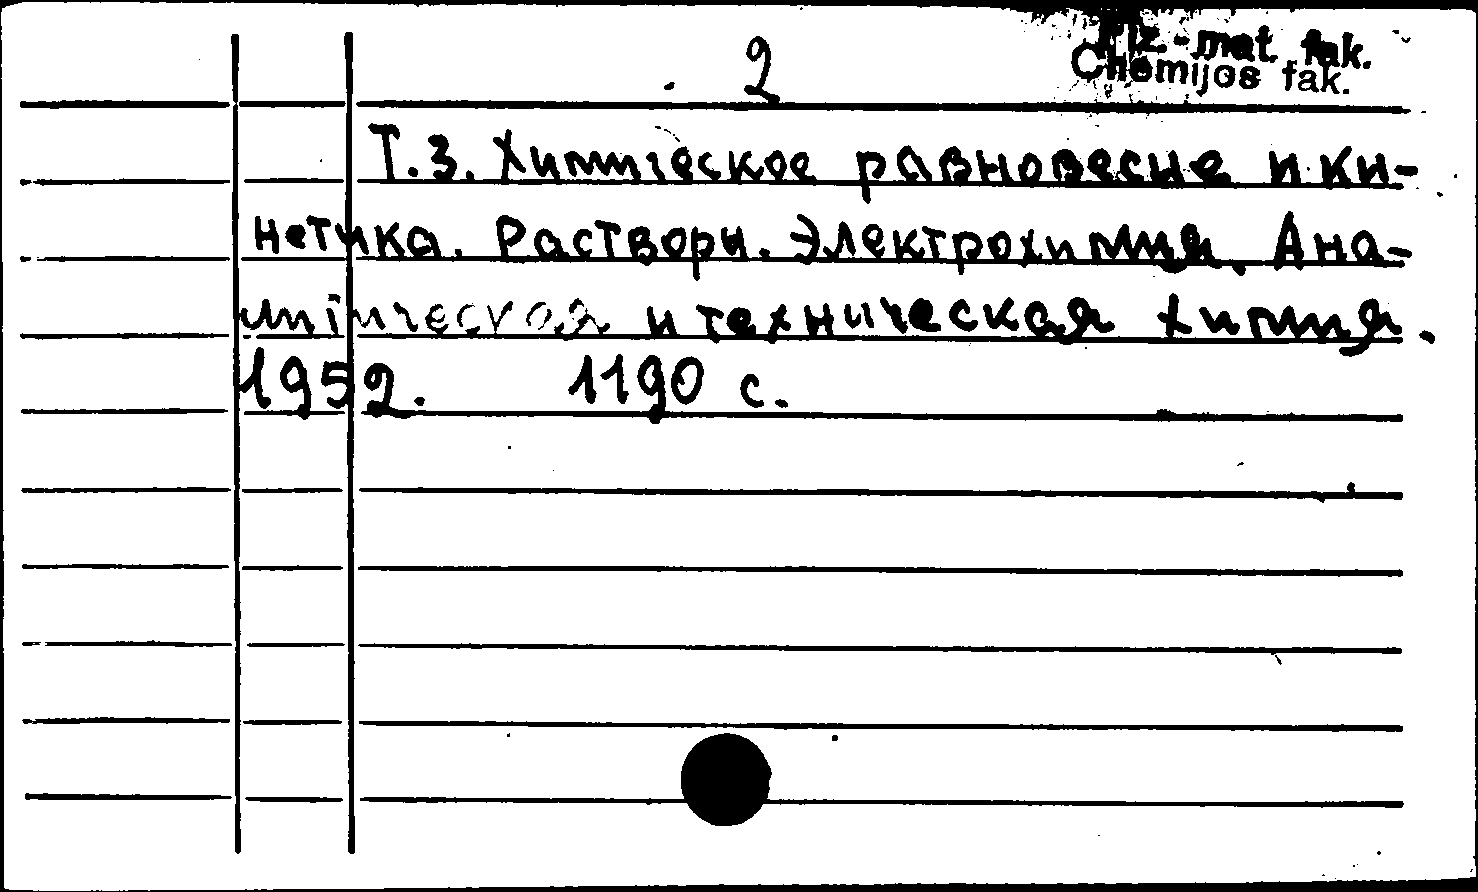 2
Fiz.-mat. fak.
Chemijos fak.
Т.3. Химическое равновесие и ки-
нетика. Растворы. Электрохимия. Ана-
литическая и техническая химия.
1952. 1190 с.